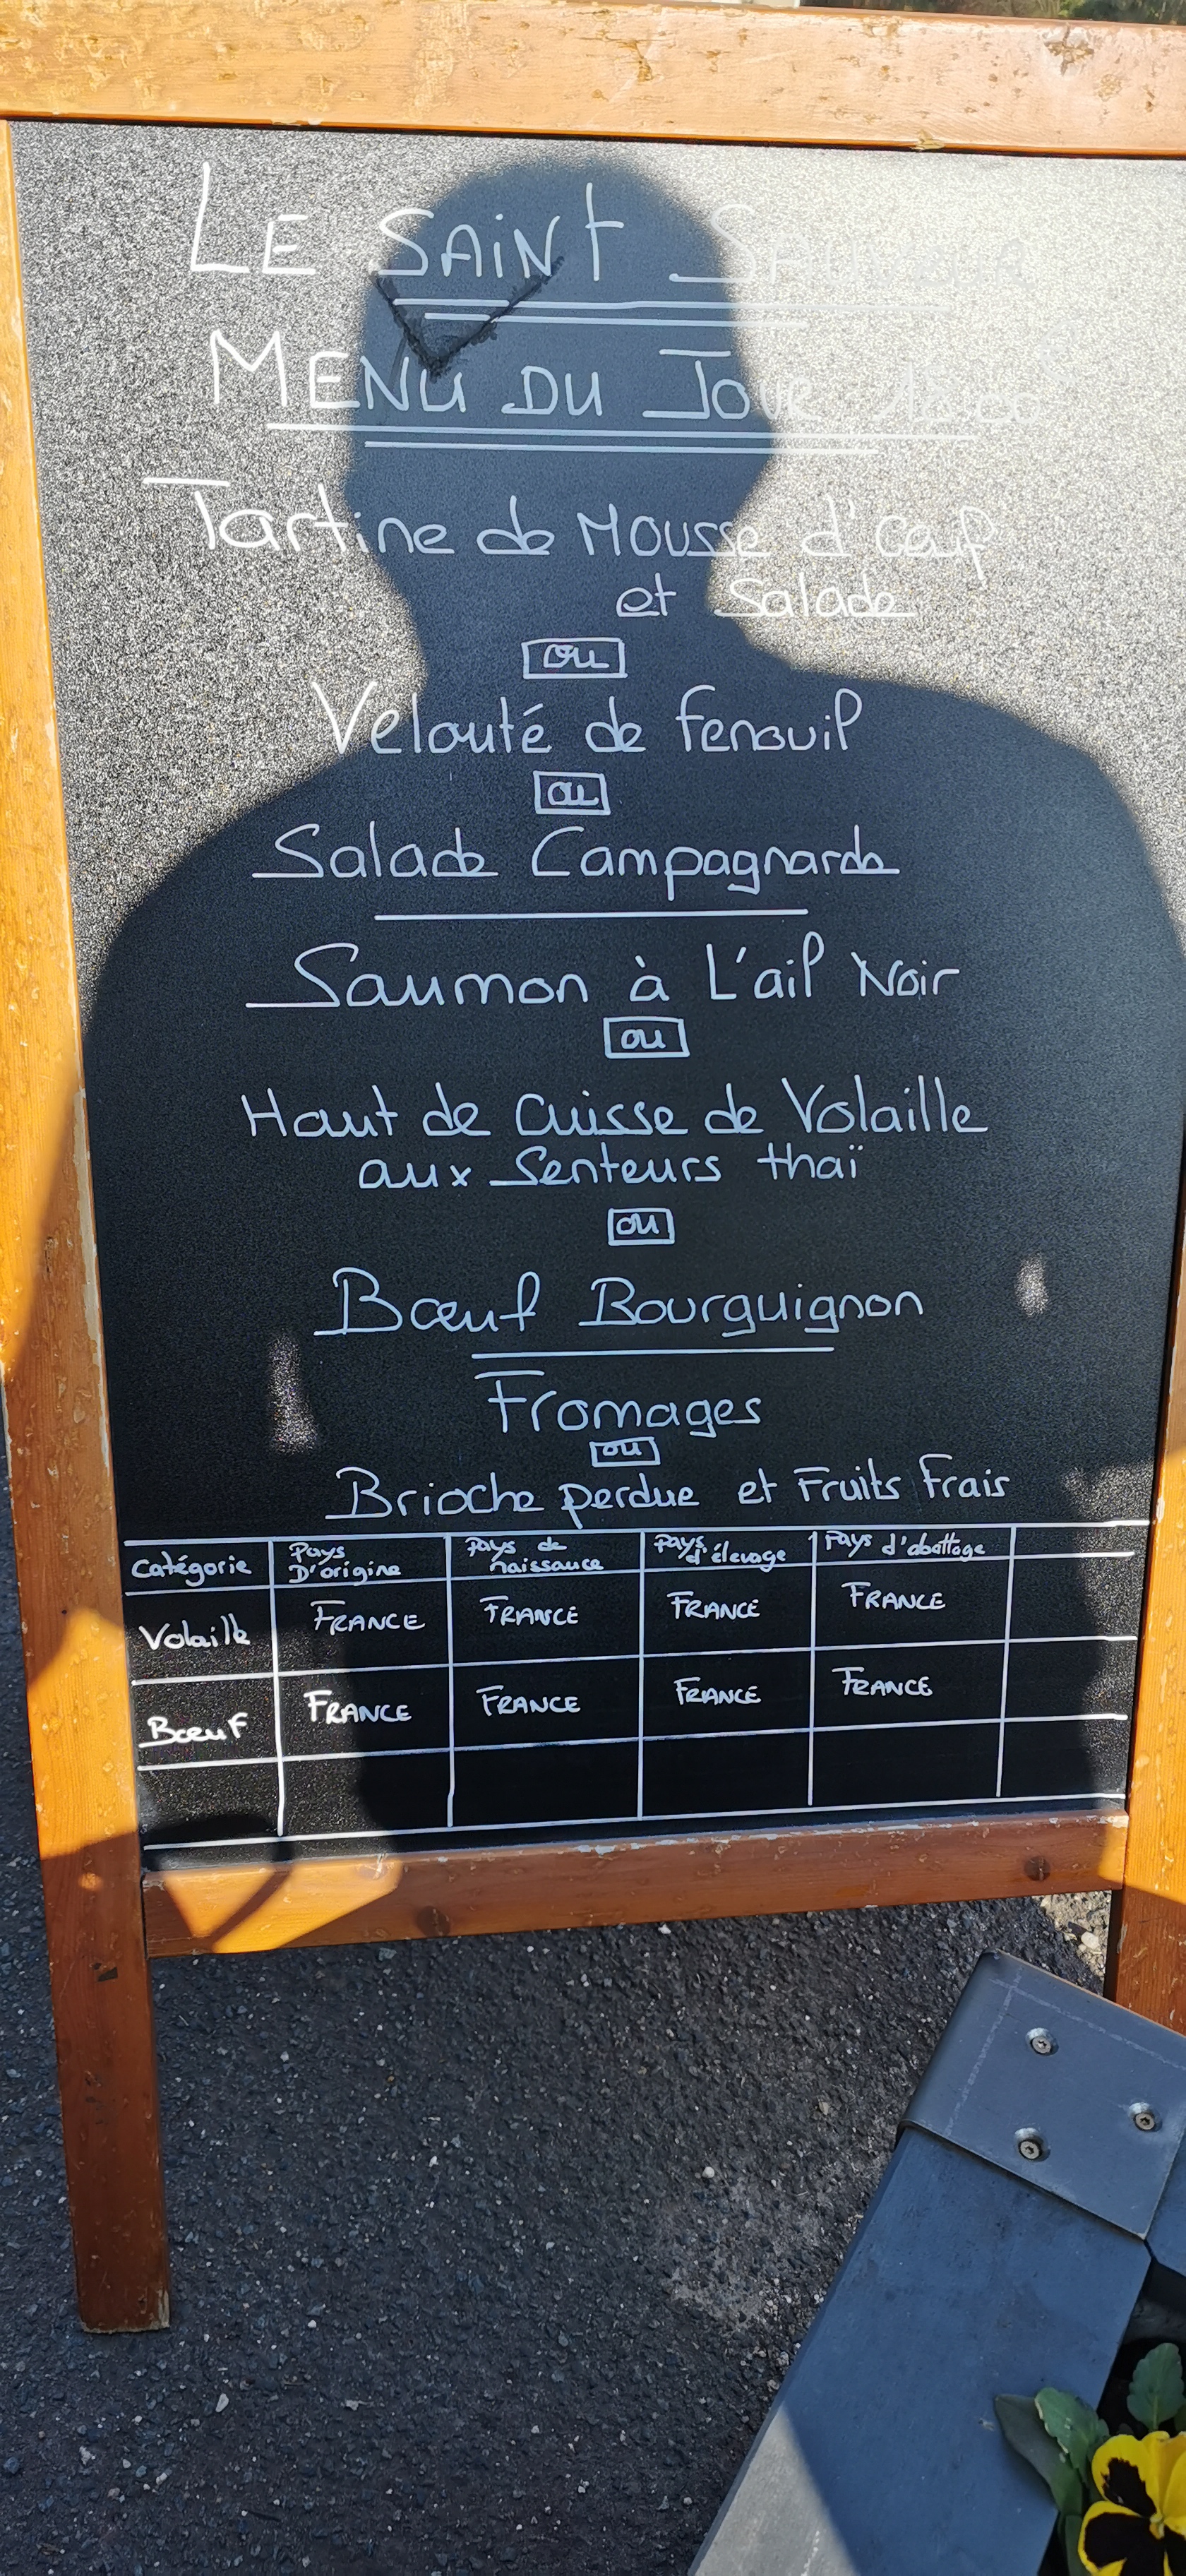 LE SAINT
MENU DU JOUR
Tartine de Mousse d'œuf
et Salade
ou
Velouté de fenouil
ou
Salade Campagnarde
Saumon à L'ail Noir
ou
Haut de cuisse de Volaille
aux Senteurs thaï
ou
Bœuf Bourguignon
Fromages
ou
Brioche perdue et Fruits Frais
Catégorie Pays D'origine Pays de naissance Pays d'élevage Pays d'abattage
Volaille FRANCE FRANCE FRANCE FRANCE
Bœuf FRANCE FRANCE FRANCE FRANCE